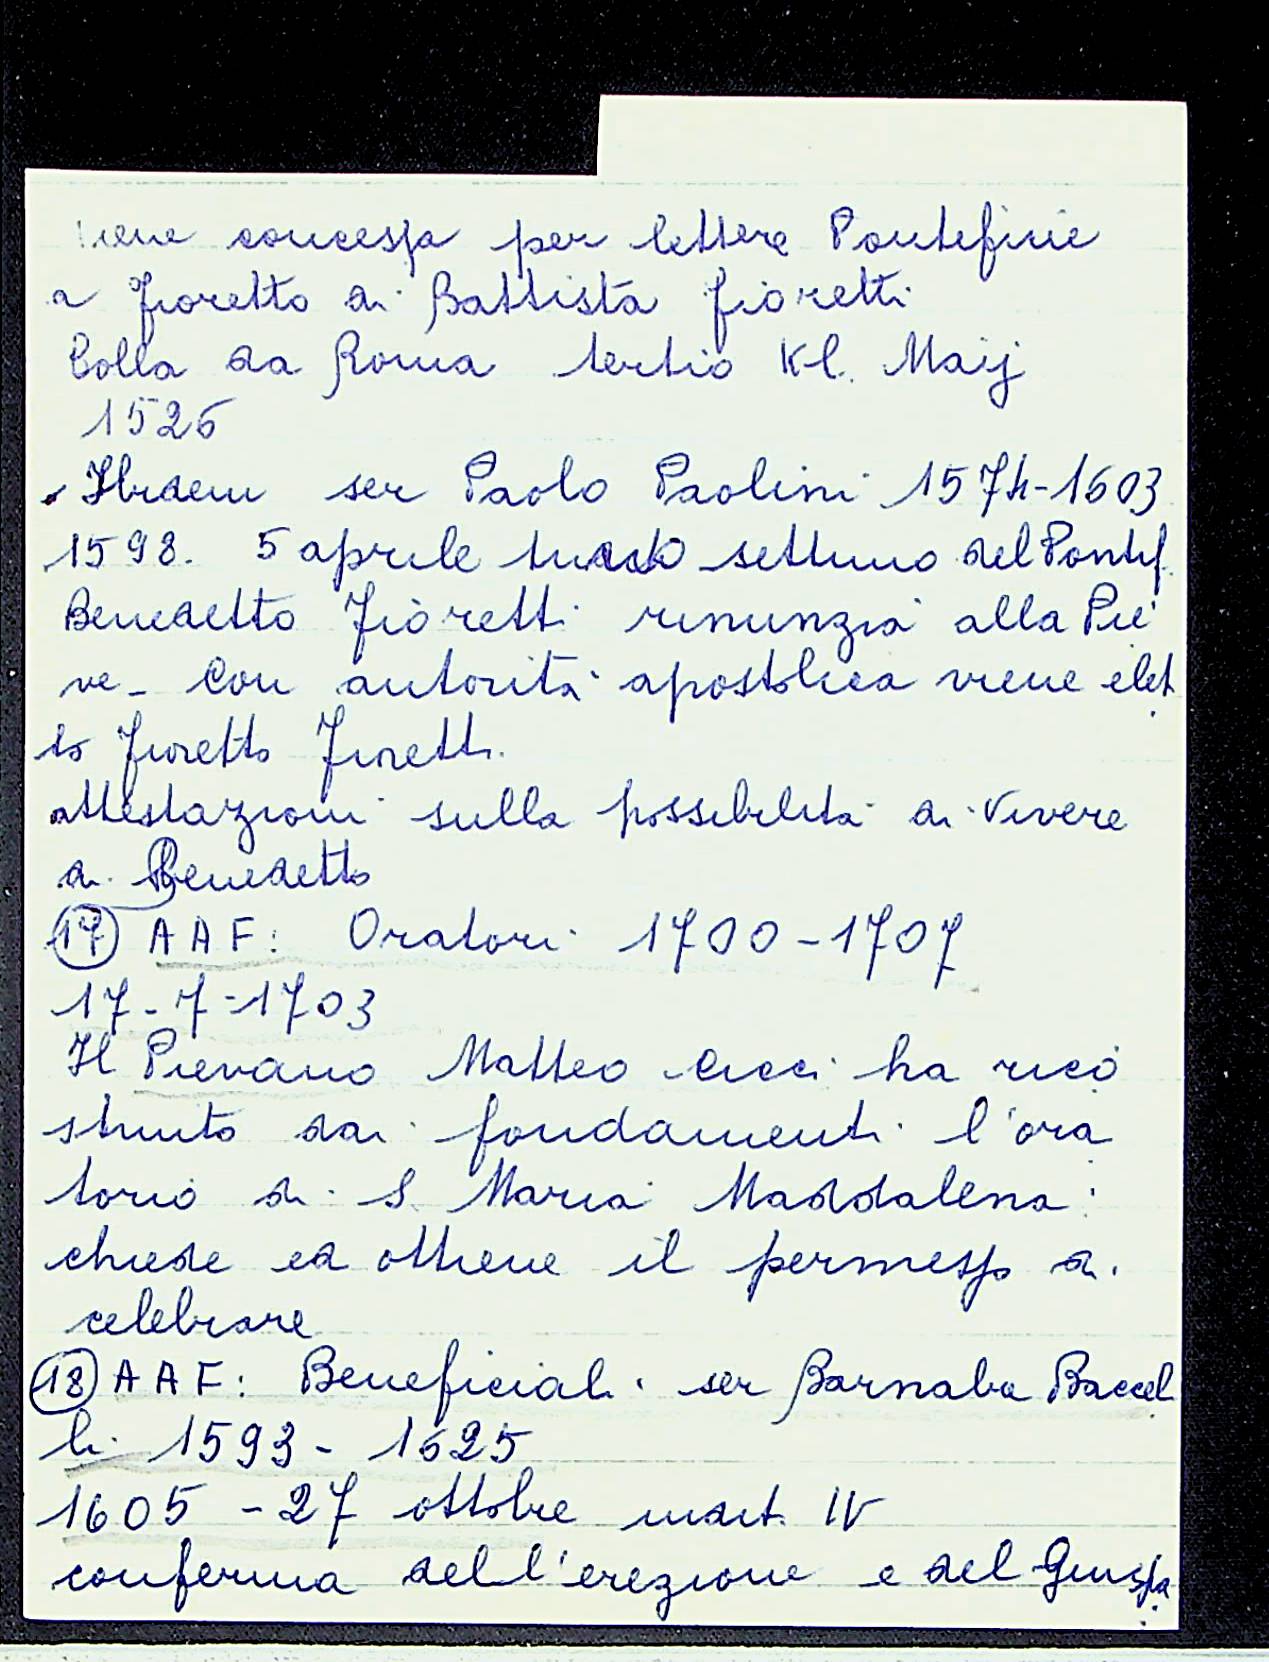 viene concessa per lettere Pontificie
a Fioretto di Battista Fioretti
Bolla da Roma tertio Kl. Maij
1526
Ibidem ser Paolo Paolini 1574-1603
1598. 5 aprile settimo del Pontif.
Benedetto Fioretti rinunzia alla Pie
ve - Con autorità apostolica viene elet
to Fioretto Fioretti.
attestazioni sulla possibilità di vivere
di Benedetto
17 AAF: Oratori 1700-1707
17-7-1703
Il Pievano Matteo Cicci ha rico
struito dai fondamenti l'ora
torio di S. Maria Maddalena:
chiede ed ottiene il permesso di
celebrare
18 AAF: Beneficiali ser Barnaba Baccel
li 1593-1625
1605 - 27 ottobre indit. IV
conferma dell'erezione e del Giuspa